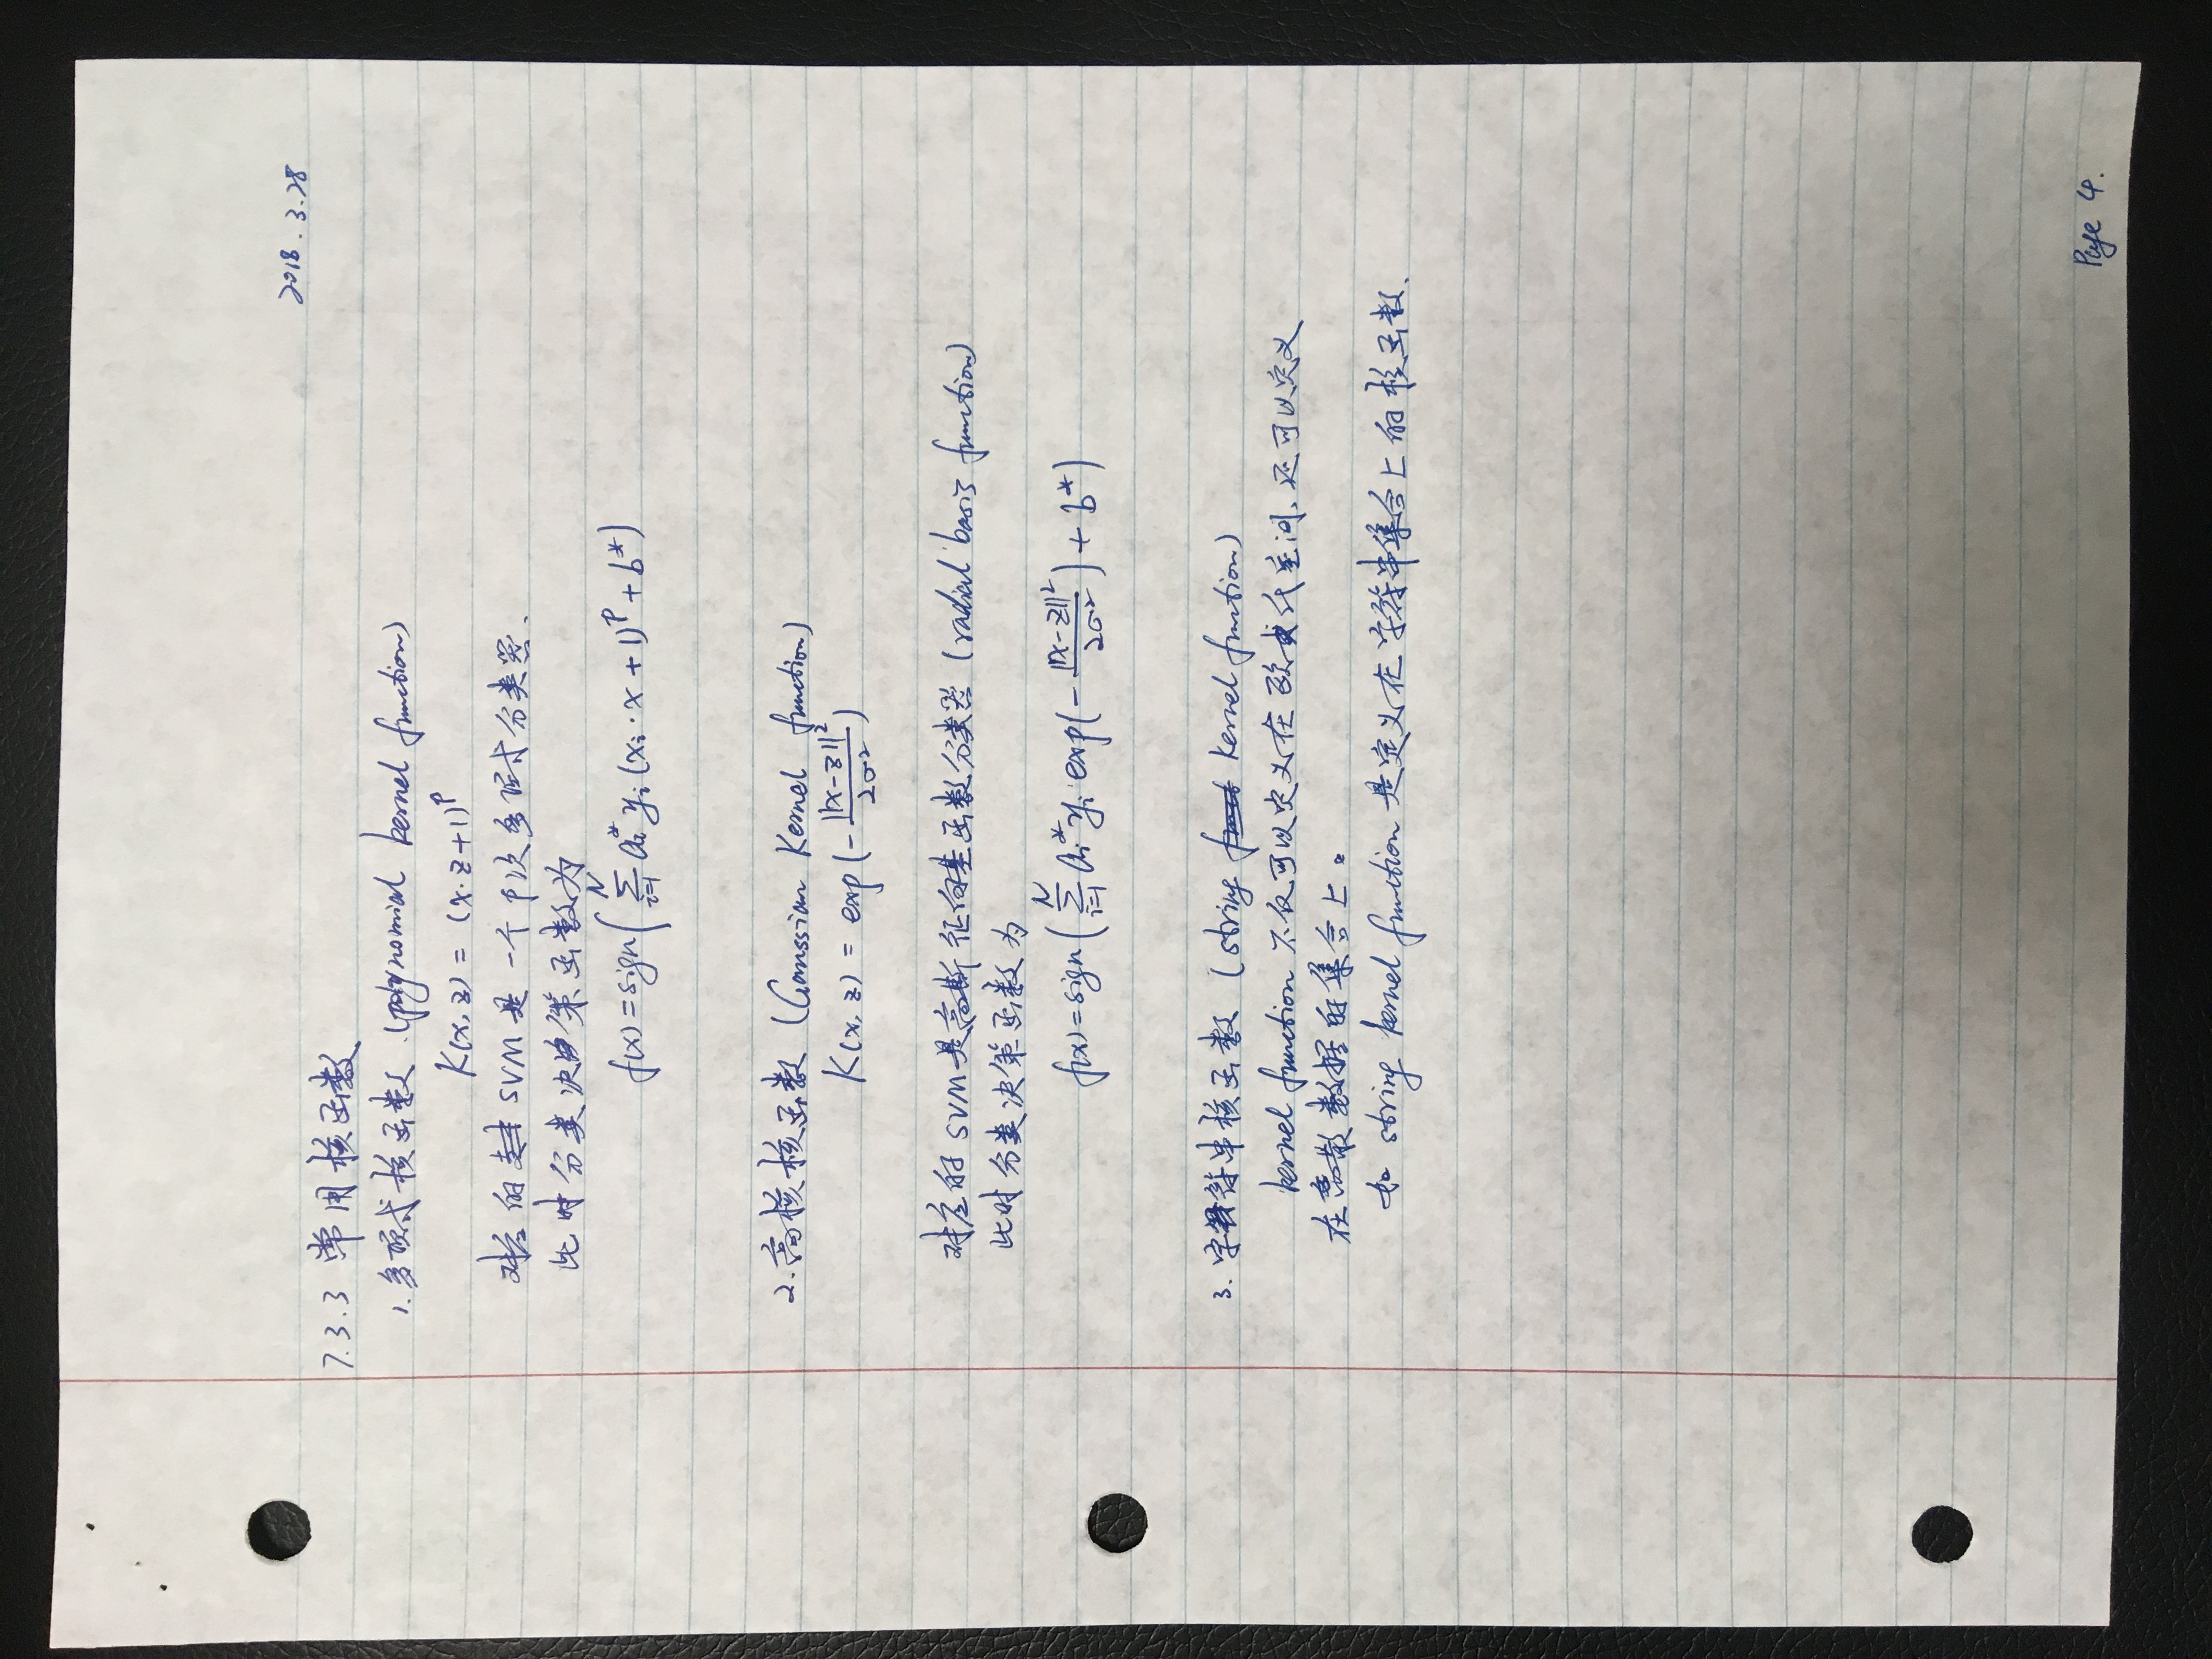 2018.3.28
7.3.3 常用核函数
1. 多项式核函数 (polynomial kernel function)
K(x,z) = (x·z+1)^p
对应的 SVM 是一个p次多项式分类器.
此时分类决策函数为
f(x)=sign(∑_{i=1}^{N} a_i^* y_i (x_i·x+1)^p + b^*)
2. 高核核函数 (Gaussian Kernel function)
K(x,z) = exp(-||x-z||²/2σ²)
对应的 SVM 是高斯径向基函数分类器 (radial basis function)
此时分类决策函数为
f(x)=sign(∑_{i=1}^{N} a_i^* y_i exp(-||x-z||²/2σ²) + b^*)
3. 字符串核函数 (string kernel function)
kernel function 不仅可以定义在欧式空间, 还可以定义
在离散数据的集合上。
string kernel function 是定义在字符串集合上的核函数.
Page 4.